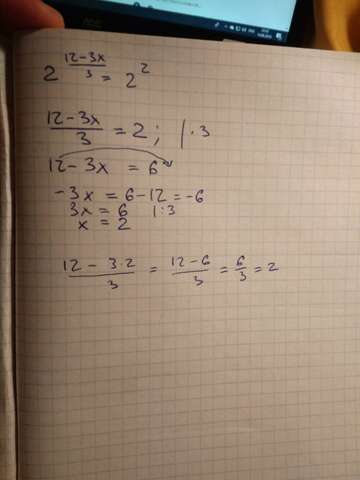 2^((12-3x)/3) = 2^2
(12-3x)/3 = 2; | · 3
12-3x = 6
-3x = 6-12 = -6
3x = 6 | : 3
x = 2
(12 - 3·2)/3 = (12-6)/3 = 6/3 = 2